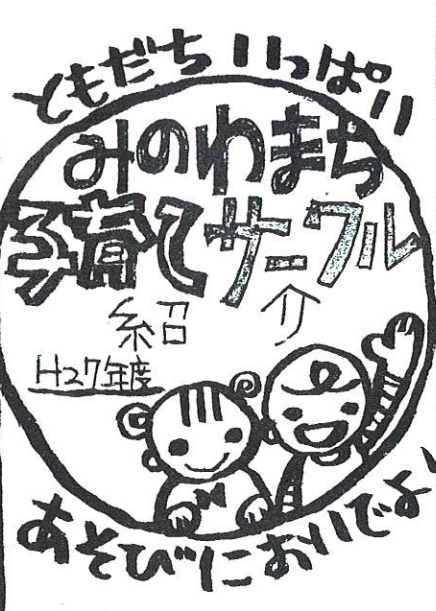 ともだちいっぱい
みのわまち
子育てサークル
紹介
H27年度
あそびにおいでよ